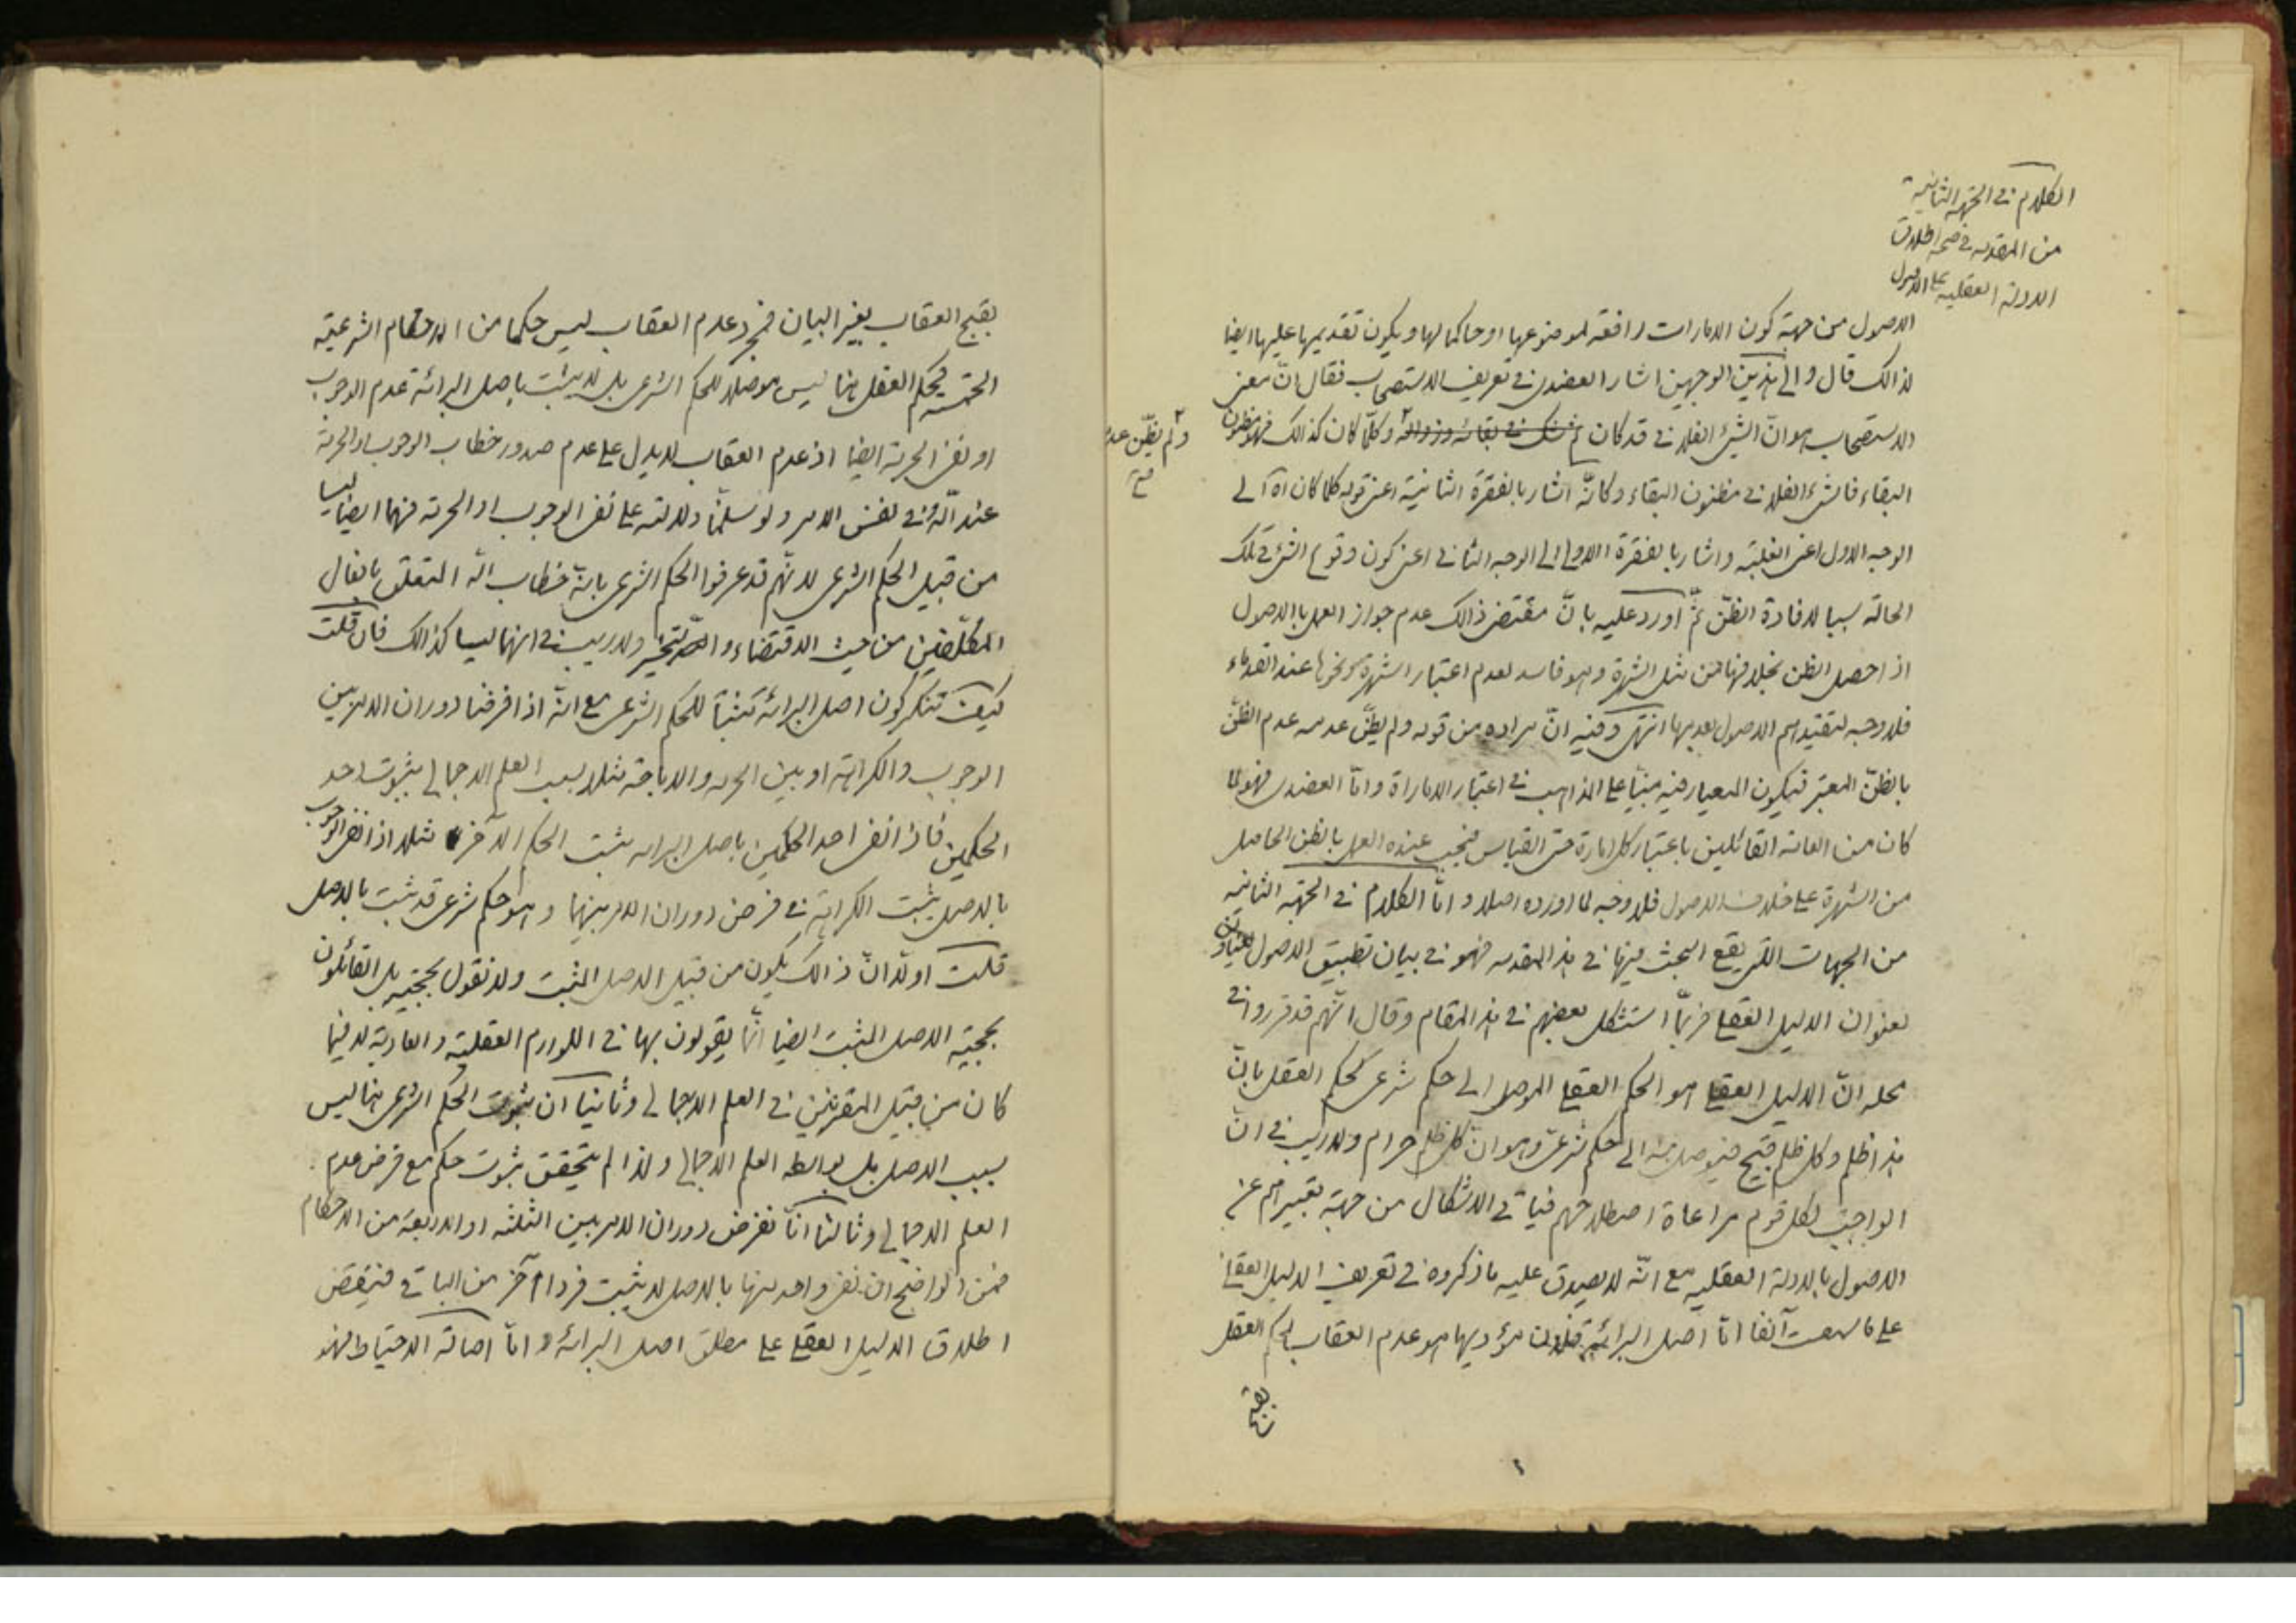 الكلام في الجهة الثانية
من المقدمه في صحة اطلاق
الادلة العقليه على الاصول
الاصول من جهة كون الامارات رافعة لموضوعها او حاكما لها ويكون تقديمها عليها ايضا
لذالك قال والى هذين الوجهين اشار العضدى في تعريف الاستصحاب فقال انّ معنى
الاستصحاب هو انّ الشئ الفلانى قد كان ثم شك في بقائه وزواله وكلّما كان كذالك فهو مظنون
ولم يظنّ عدمه
صح
البقاء فالشئ الفلانى مظنون البقاء وكانّه اشار بالفقرة الثانية اعنى قوله كلما كان اه الى
الوجه الاول اعنى الغلبة واشار بالفقرة الاولى الى الوجه الثانى اعنى كون وقوع الشئ في تلك
الحالة سببا لافادة الظنّ ثمّ اورد عليه بانّ مقتضى ذالك عدم جواز العمل بالاصول
اذا حصل الظن بخلافها من مثل الشهرة وهو فاسد لعدم اعتبار الشهرة ونحوها عند القدماء
فلا وجه لتقييدهم الاصول بعدمها انتهى وفيه انّ مراده من قوله ولم يظنّ عدمه عدم الظنّ
بالظنّ المعتبر فيكون المعيار فيه مبنيّا على المذاهب في اعتبار الاماراة وامّا العضدى فهو لما
كان من العامه القائلين باعتبار كل امارة حتى القياس فيجب عنده العمل بالظن الحاصل
من الشهرة على خلاف الاصول فلا وجه لما اورده اصلا وامّا الكلام في الجهة الثانيه
من الجهات التى يقع البحث فيها في هذا المقدمه فهو في بيان تطبيق الاصول
بعنوان الدليل العقلى فربّما استشكل بعضهم في هذا المقام وقال انّهم قد قرروا في
محله انّ الدليل العقلى هو الحكم العقلى الموصل الى حكم شرعى كحكم العقل بانّ
هذا ظلم وكل ظلم قبيح فيوصل منه الى حكم شرعى وهو انّ كل ظلم حرام ولا ريب في انّ
الواجب لكل قوم مراعاة اصطلاحهم فياتى الاشكال من جهة تعبيرهم عن
الاصول بالادلة العقليه مع انّه لا يصدق عليه ما ذكروه في تعريف الدليل العقلى
على ما سمعت آنفا امّا اصل البرائة فلان مؤديها هو عدم العقاب لحكم العقل
بقبح
بقبح العقاب بغير البيان فمجرد عدم العقاب ليس حكما من الاحكام الشرعيّة
الخمسة فحكم العقل هنا ليس موصلا للحكم الشرعى بل لا يثبت باصل البرائة عدم الوجوب
او نفى الحرمة ايضا اذ عدم العقاب لا يدل على عدم صدور خطاب الوجوب او الحرمة
عند اللّه في نفس الامر ولو سلمنا دلالته على نفى الوجوب او الحرمة فهما ايضا ليسا
من قبيل الحكم الشرعى لانّهم قد عرفوا الحكم الشرعى بانّه خطاب اللّه المتعلق بافعال
المكلّفين من حيث الاقتضاء والتخيير ولا ريب في انهما ليسا كذالك فان قلت
كيف تنكر كون اصل البرائة مثبتا للحكم الشرعى مع انّه اذا فرضنا دوران الامر بين
الوجوب والكراهة او بين الحرمه والاباحة مثلا بسبب العلم الاجمالى بثبوت احد
الحكمين فاذا انتفى احد الحكمين باصل البرائه يثبت الحكم الآخر مثلا اذا انتفى الوجوب
بالاصل يثبت الكراهة في فرض دوران الامر بينهما وهو حكم شرعى قد ثبت بالاصل
قلت اولا انّ ذالك يكون من قبيل الاصل المثبت ولا نقول بحجيته بل القائلون
بحجية الاصل المثبت ايضا انّما يقولون بها في اللوازم العقلية والعادية لا فيما
كان من قبيل المقرنين في العلم الاجمالى وثانيا ان ثبوت الحكم الشرعى هنا ليس
بسبب الاصل بل بواسطه العلم الاجمالى ولذا لم يتحقق ثبوت حكم مع فرض عدم
العلم الاجمالى وثالثا انّا نفرض دوران الامر بين الثلثه او الاربعة من الاحكام
فمن الواضح ان نفى واحد منها بالاصل لا يثبت فردا آخر من الباقى فينتقض
اطلاق الدليل العقلى على مطلق اصل البرائة وامّا اصالة الاحتياط فهو